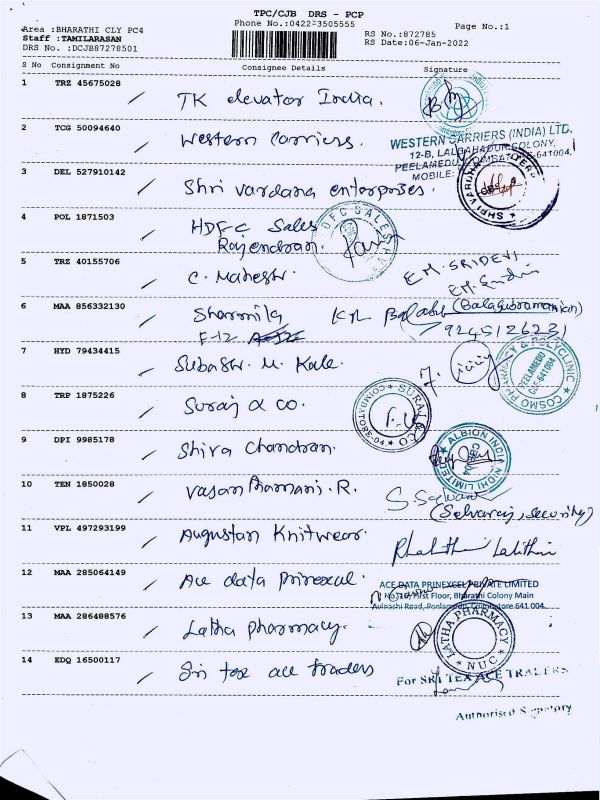 TPC/CJB DRS - PCP
Phone No.:0422-3505555
Page No.:1
Area :BHARATHI CLY PC4
Staff :TAMILARASAN
DRS No. :DCJB87278501
RS No.:872785
RS Date:06-Jan-2022
S No Consignment No Consignee Details Signature
1 TRZ 45675028 TK elevator India.
2 TCG 50094640 Western Carriers.
WESTERN CARRIERS (INDIA) LTD.
12-B, LALBAHADUR COLONY,
PEELAMEDU, COIMBATORE-641004.
MOBILE:
3 DEL 527910142 Shri vardana enterprises.
SHRI VARDHANA
4 POL 1871503 HDFC Sales
Rajendran.
HDFC SALES
5 TRZ 40155706 C. Mahesw.
E.M. SRIDEVI
6 MAA 856332130 Sharmila KR Balasu (Balasubramanian)
F-12
9245126231
7 HYD 79434415 Subasw. M. Kale.
COSMO PHARMACY & POLYCLINIC
PEELAMEDU
CBE-641 004
8 TRP 1875226 Suraj & co.
SURAJ & CO
COIMBATORE
9 DPI 9985178 Shiva Chandran.
ALBION INDIA NIDHI LIMITED
10 TEN 1850028 Vasan Ramani. R.
S. Selvaraj
(Selvaraj, security)
11 VPL 497293199 Augustan Knitwear.
Lalithin
12 MAA 285064149 Ace data prinexcel.
ACE DATA PRINEXCEL PRIVATE LIMITED
First Floor, Bharathi Colony Main
Avinashi Road, Peelamedu, Coimbatore 641 004.
13 MAA 286488576 Latha pharmacy.
LATHA PHARMACY
NUC
14 EDQ 16500117 Sri tex ace traders
For SRI TEX ACE TRALERS
Authorised Signatory